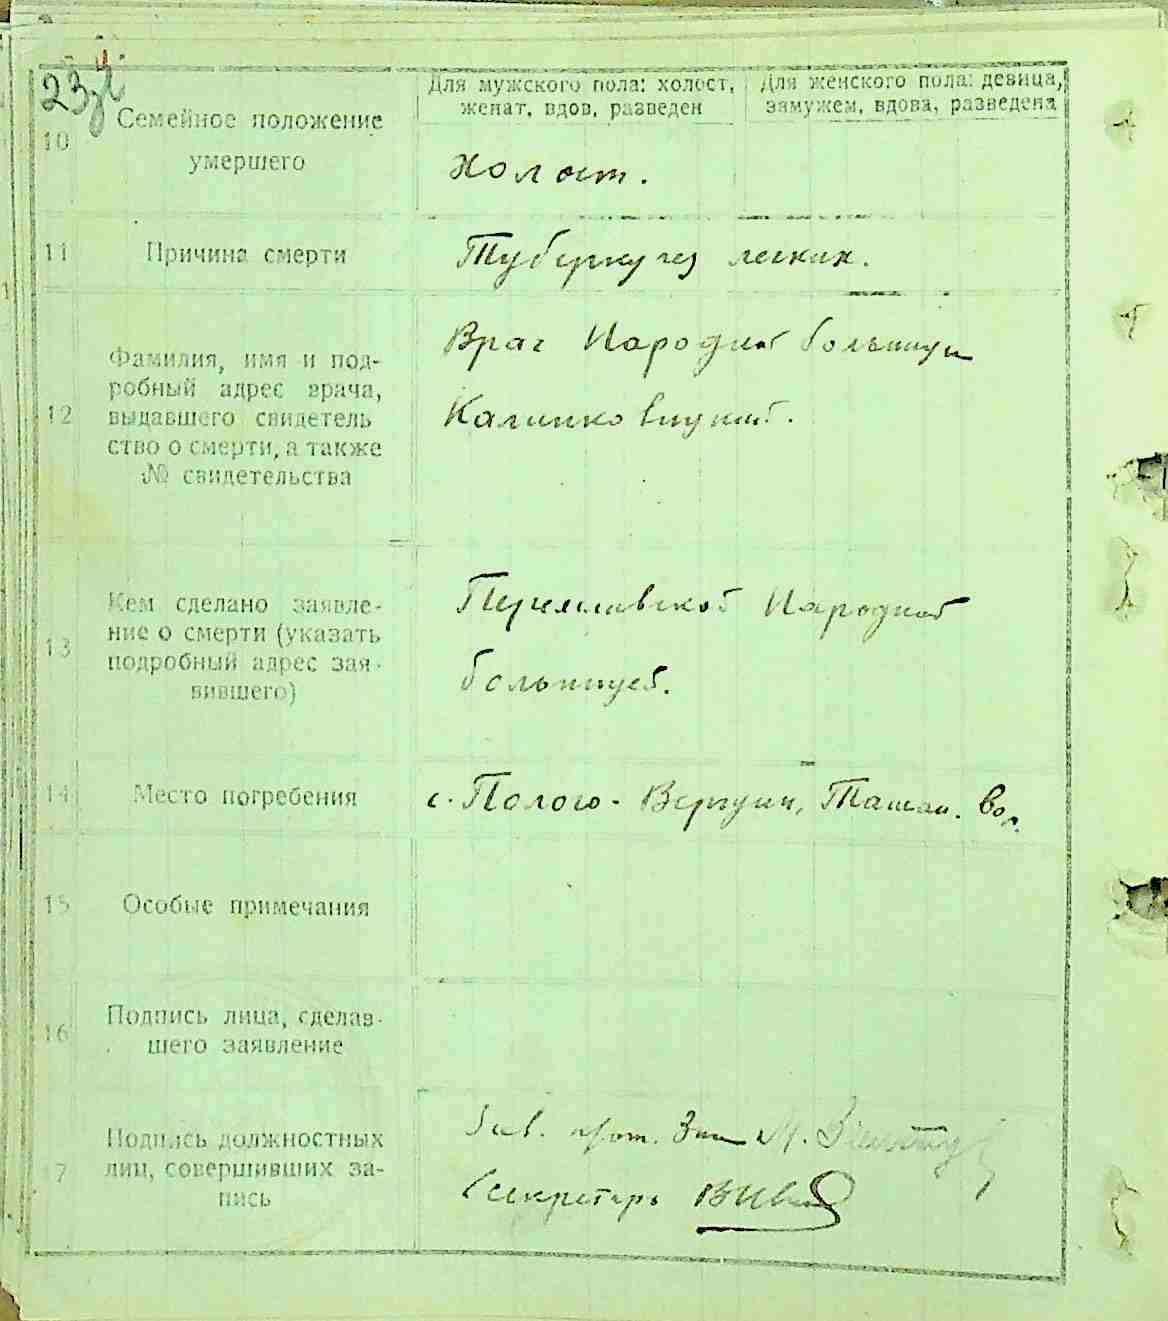 Для мужского пола: холост,
женат, вдов, разведен
Для женского пола: девица,
замужем, вдова, разведена
10
Семейное положение
умершего
холост.
11
Причина смерти
Туберкулез легких.
12
Фамилия, имя и под-
робный адрес врача,
выдавшего свидетель
ство о смерти, а также
№ свидетельства
Врач Народной больницы
Калинковицкий.
13
Кем сделано заявле-
ние о смерти (указать
подробный адрес зая-
вившего)
Переяславской Народной
больницей.
14
Место погребения
с. Полого-Вергуны, Ташан. вол.
15
Особые примечания
16
Подпись лица, сделав-
шего заявление
17
Подпись должностных
лиц, совершивших за-
пись
Зав. М.
Секретарь